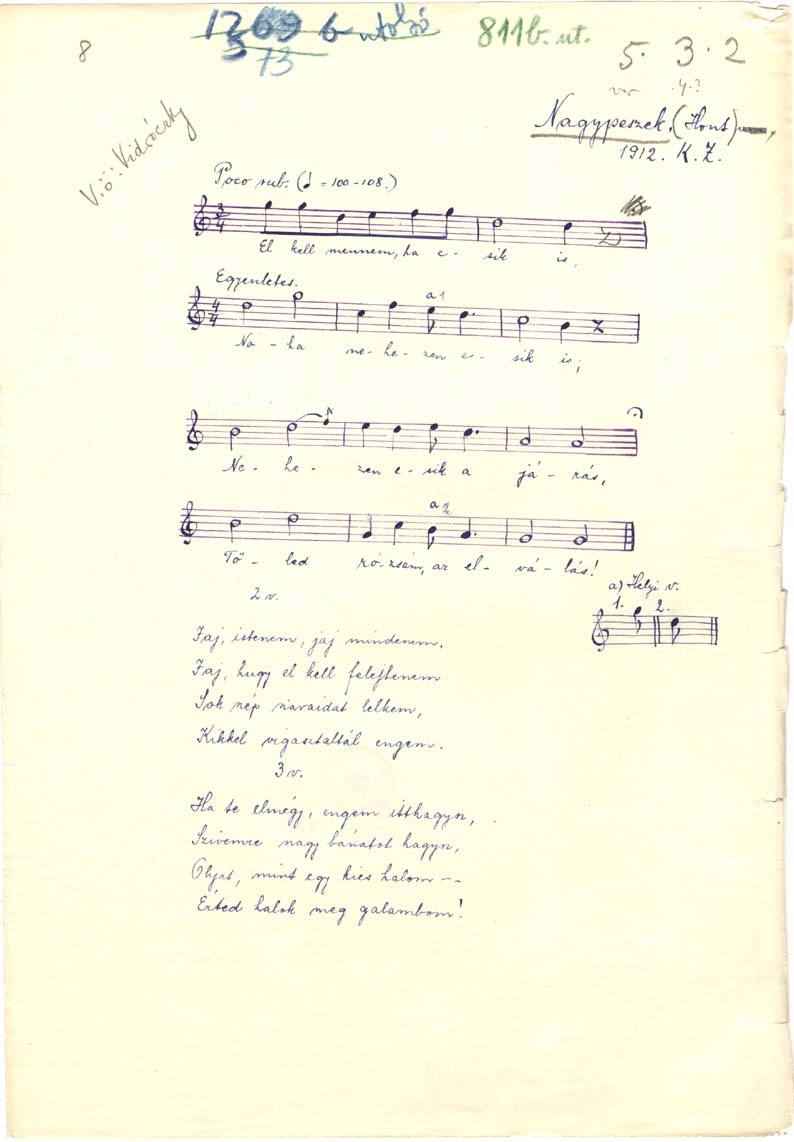 1269 b utolsó
5
73
811 b. ut.
5. 3. 2
var .4.?
8
V.ö: Vidróczky
Nagypeszek, (Hont)
1912. K. Z.
Poco rub. (♩ = 100-108.)
3/4
El kell mennem, ha e- sik is,
Egyenletes.
4/4
a 1
No - ha ne-he-zen e- sik is;
Ne - he - zen e-sik a já-rás,
a 2
Tő - led ró-zsám, az el- vá-lás!
a) Helyi v.
1. 2.
2 v.
Jaj, istenem, jaj mindenem,
Jaj, hugy el kell felejtenem
Sok nép navaidat lelkem,
Kikkel vigasztaltál engem.
3 v.
Ha te elmégy, engem itthagyn,
Szivemre nagy bánatot hagyn,
Olyat, mint egy kies halom --
Érted halok meg galambom!